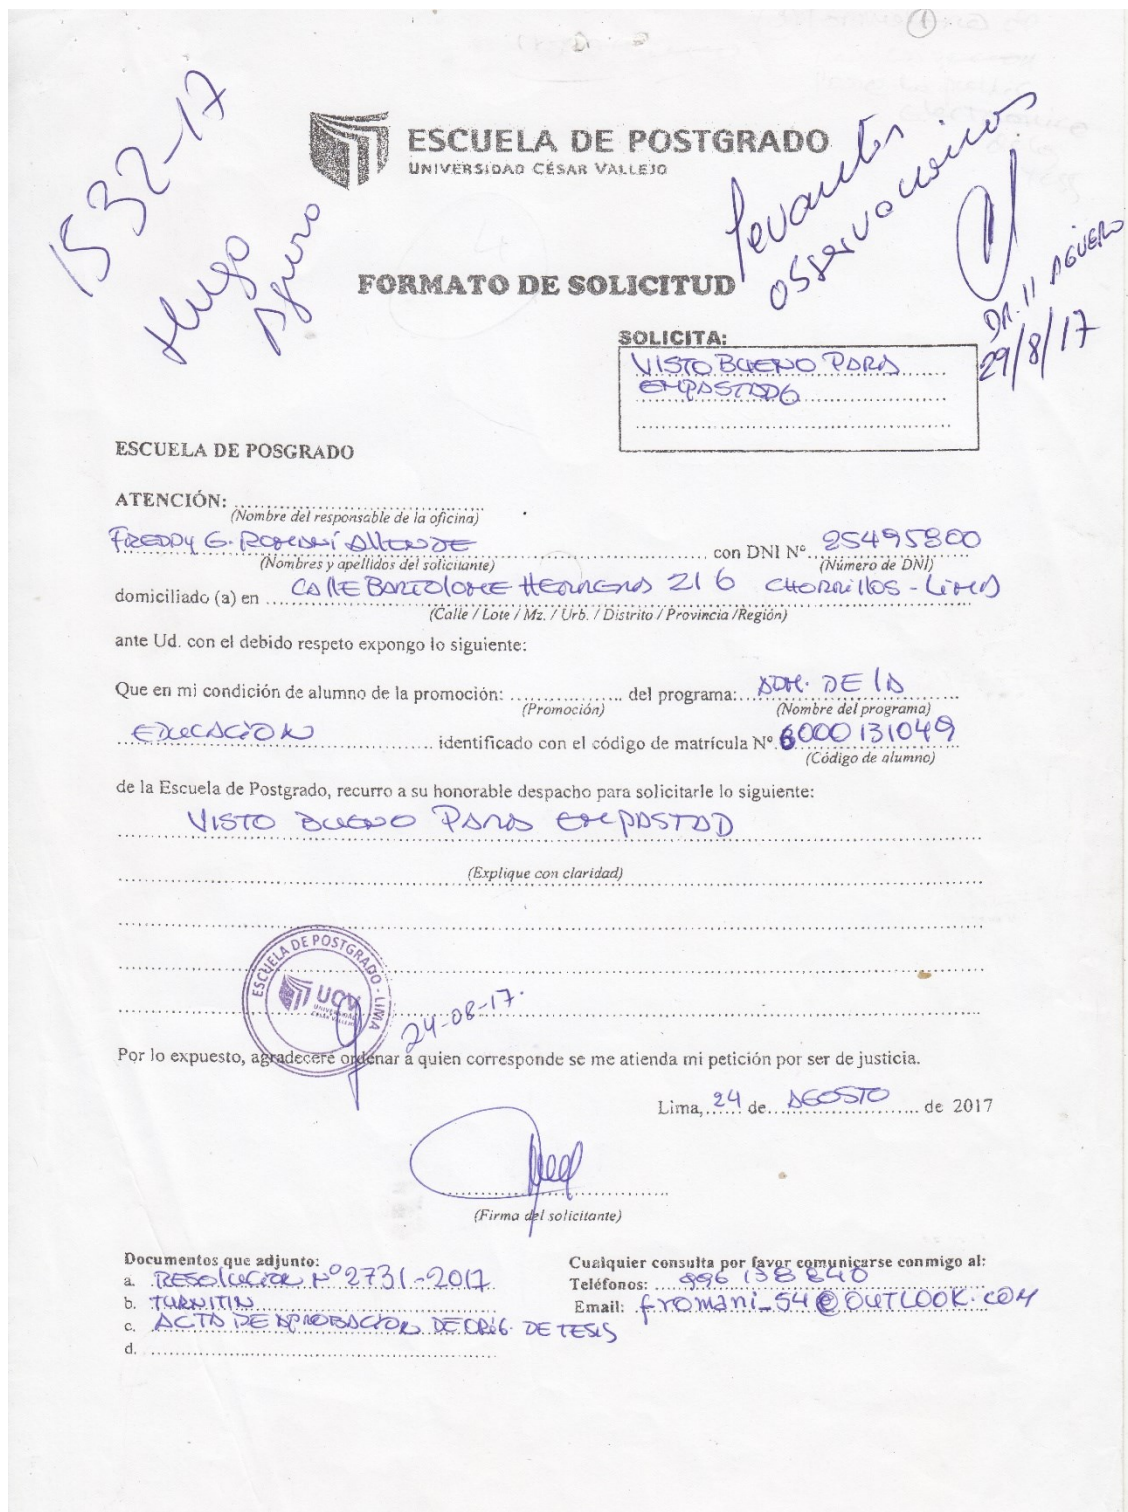 1
1532-17
Hugo
Aguero
ESCUELA DE POSTGRADO
UNIVERSIDAD CÉSAR VALLEJO
Levantar
observaciones
DR. H AGÜERO
29/8/17
FORMATO DE SOLICITUD
SOLICITA:
VISTO BUENO PARA
EMPASTADO
ESCUELA DE POSGRADO
ATENCIÓN: ........................................
(Nombre del responsable de la oficina)
FREDDY G. ROMANÍ ALLENDE con DNI N°. 25495800
(Nombres y apellidos del solicitante) (Número de DNI)
domiciliado (a) en CALLE BARTOLOME HERRERA 216 CHORRILLOS - LIMA
(Calle / Lote / Mz. / Urb. / Distrito / Provincia /Región)
ante Ud. con el debido respeto expongo lo siguiente:
Que en mi condición de alumno de la promoción: .................... del programa: ADM. DE LA
(Promoción) (Nombre del programa)
EDUCACIÓN identificado con el código de matrícula N°. 6000131049
(Código de alumno)
de la Escuela de Postgrado, recurro a su honorable despacho para solicitarle lo siguiente:
VISTO BUENO PARA EMPASTAD
(Explique con claridad)
ESCUELA DE POSTGRADO - LIMA
UCV
UNIVERSIDAD
CÉSAR VALLEJO
24-08-17.
Por lo expuesto, agradeceré ordenar a quien corresponde se me atienda mi petición por ser de justicia.
Lima, 24 de AGOSTO de 2017
(Firma del solicitante)
Documentos que adjunto:
a. RESOLUCION N° 2731-2017
b. TURNITIN
c. ACTA DE APROBACION DE ORIG. DE TESIS
d. ........................................
Cualquier consulta por favor comunicarse conmigo al:
Teléfonos: 996138840
Email: fromani_54@OUTLOOK.COM